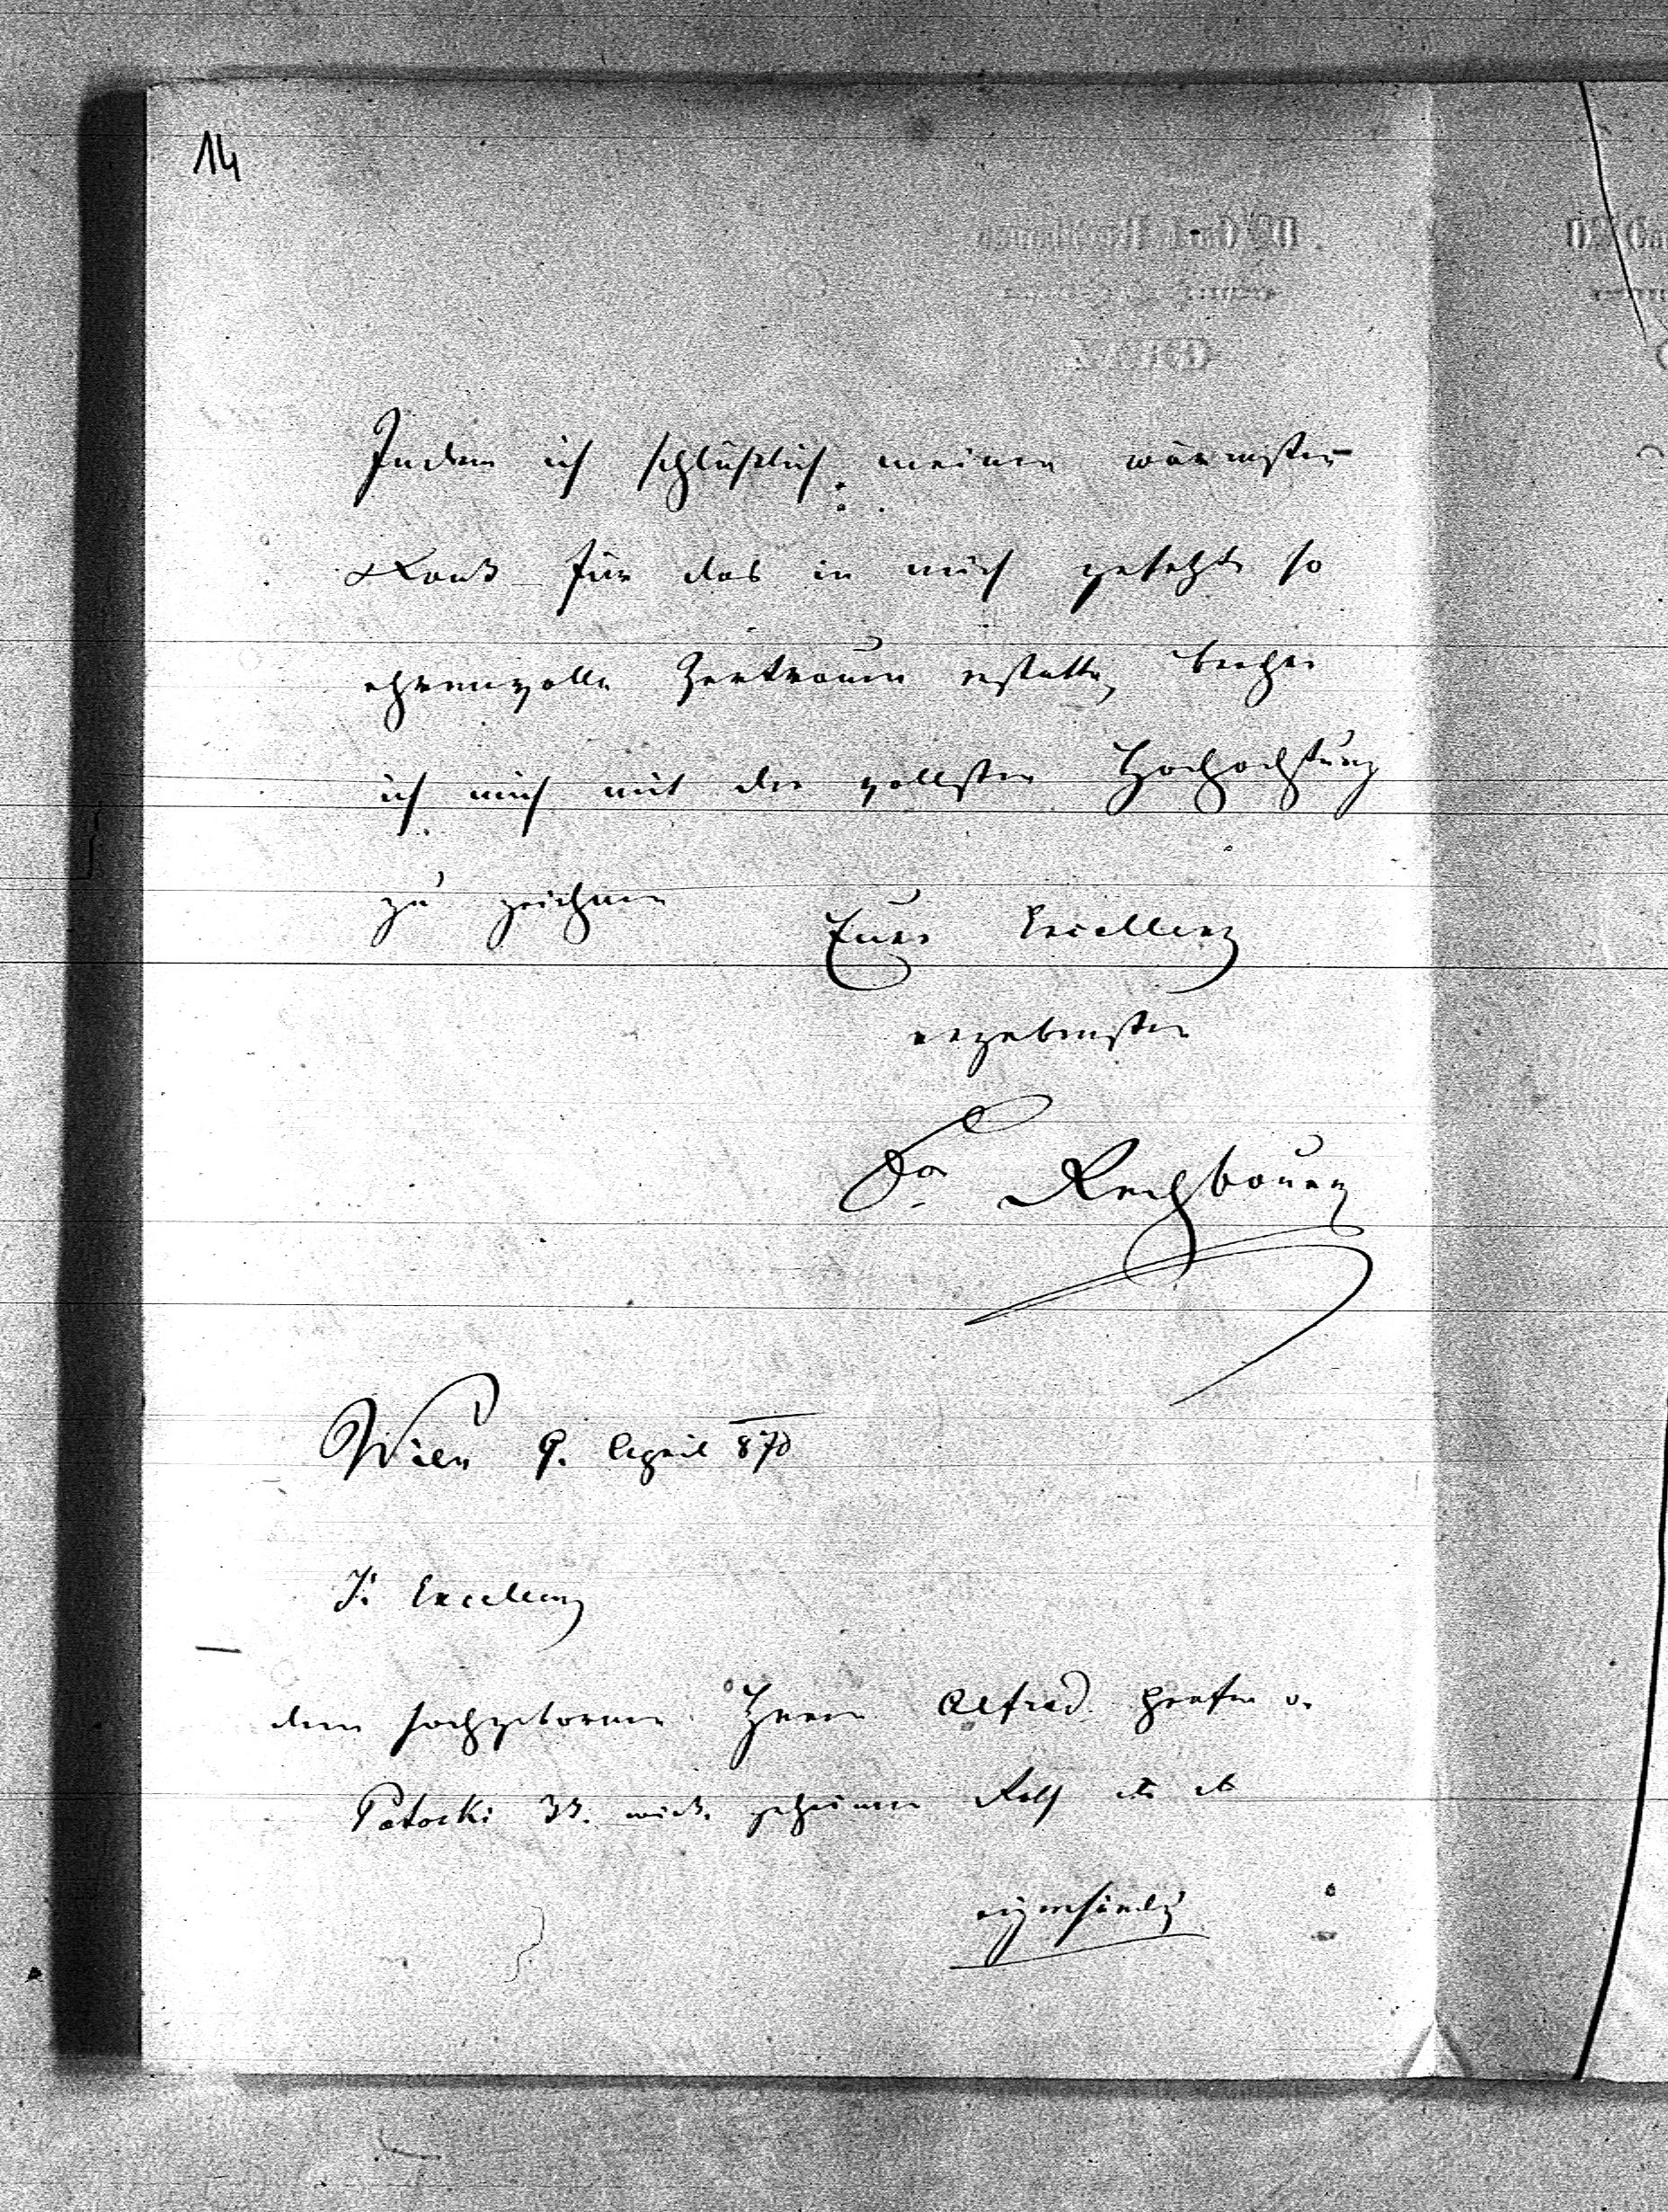 14
Indem ich schlüßlich meinen wärmsten
Dank für das in mich gesetzte so
ehrenvolle Zutrauen erstatte, beehre
ich mich mit der vollsten Hochachtung
zu zeichnen
Eurer Excellenz
ergebenster
Dr Rechbauer
Wien 9. April 870
Sr Excellenz
dem hochgebornen Herrn Alfred Grafen v.
Potocki KK. wirk. geheimen Rath etc etc
eigenhändig